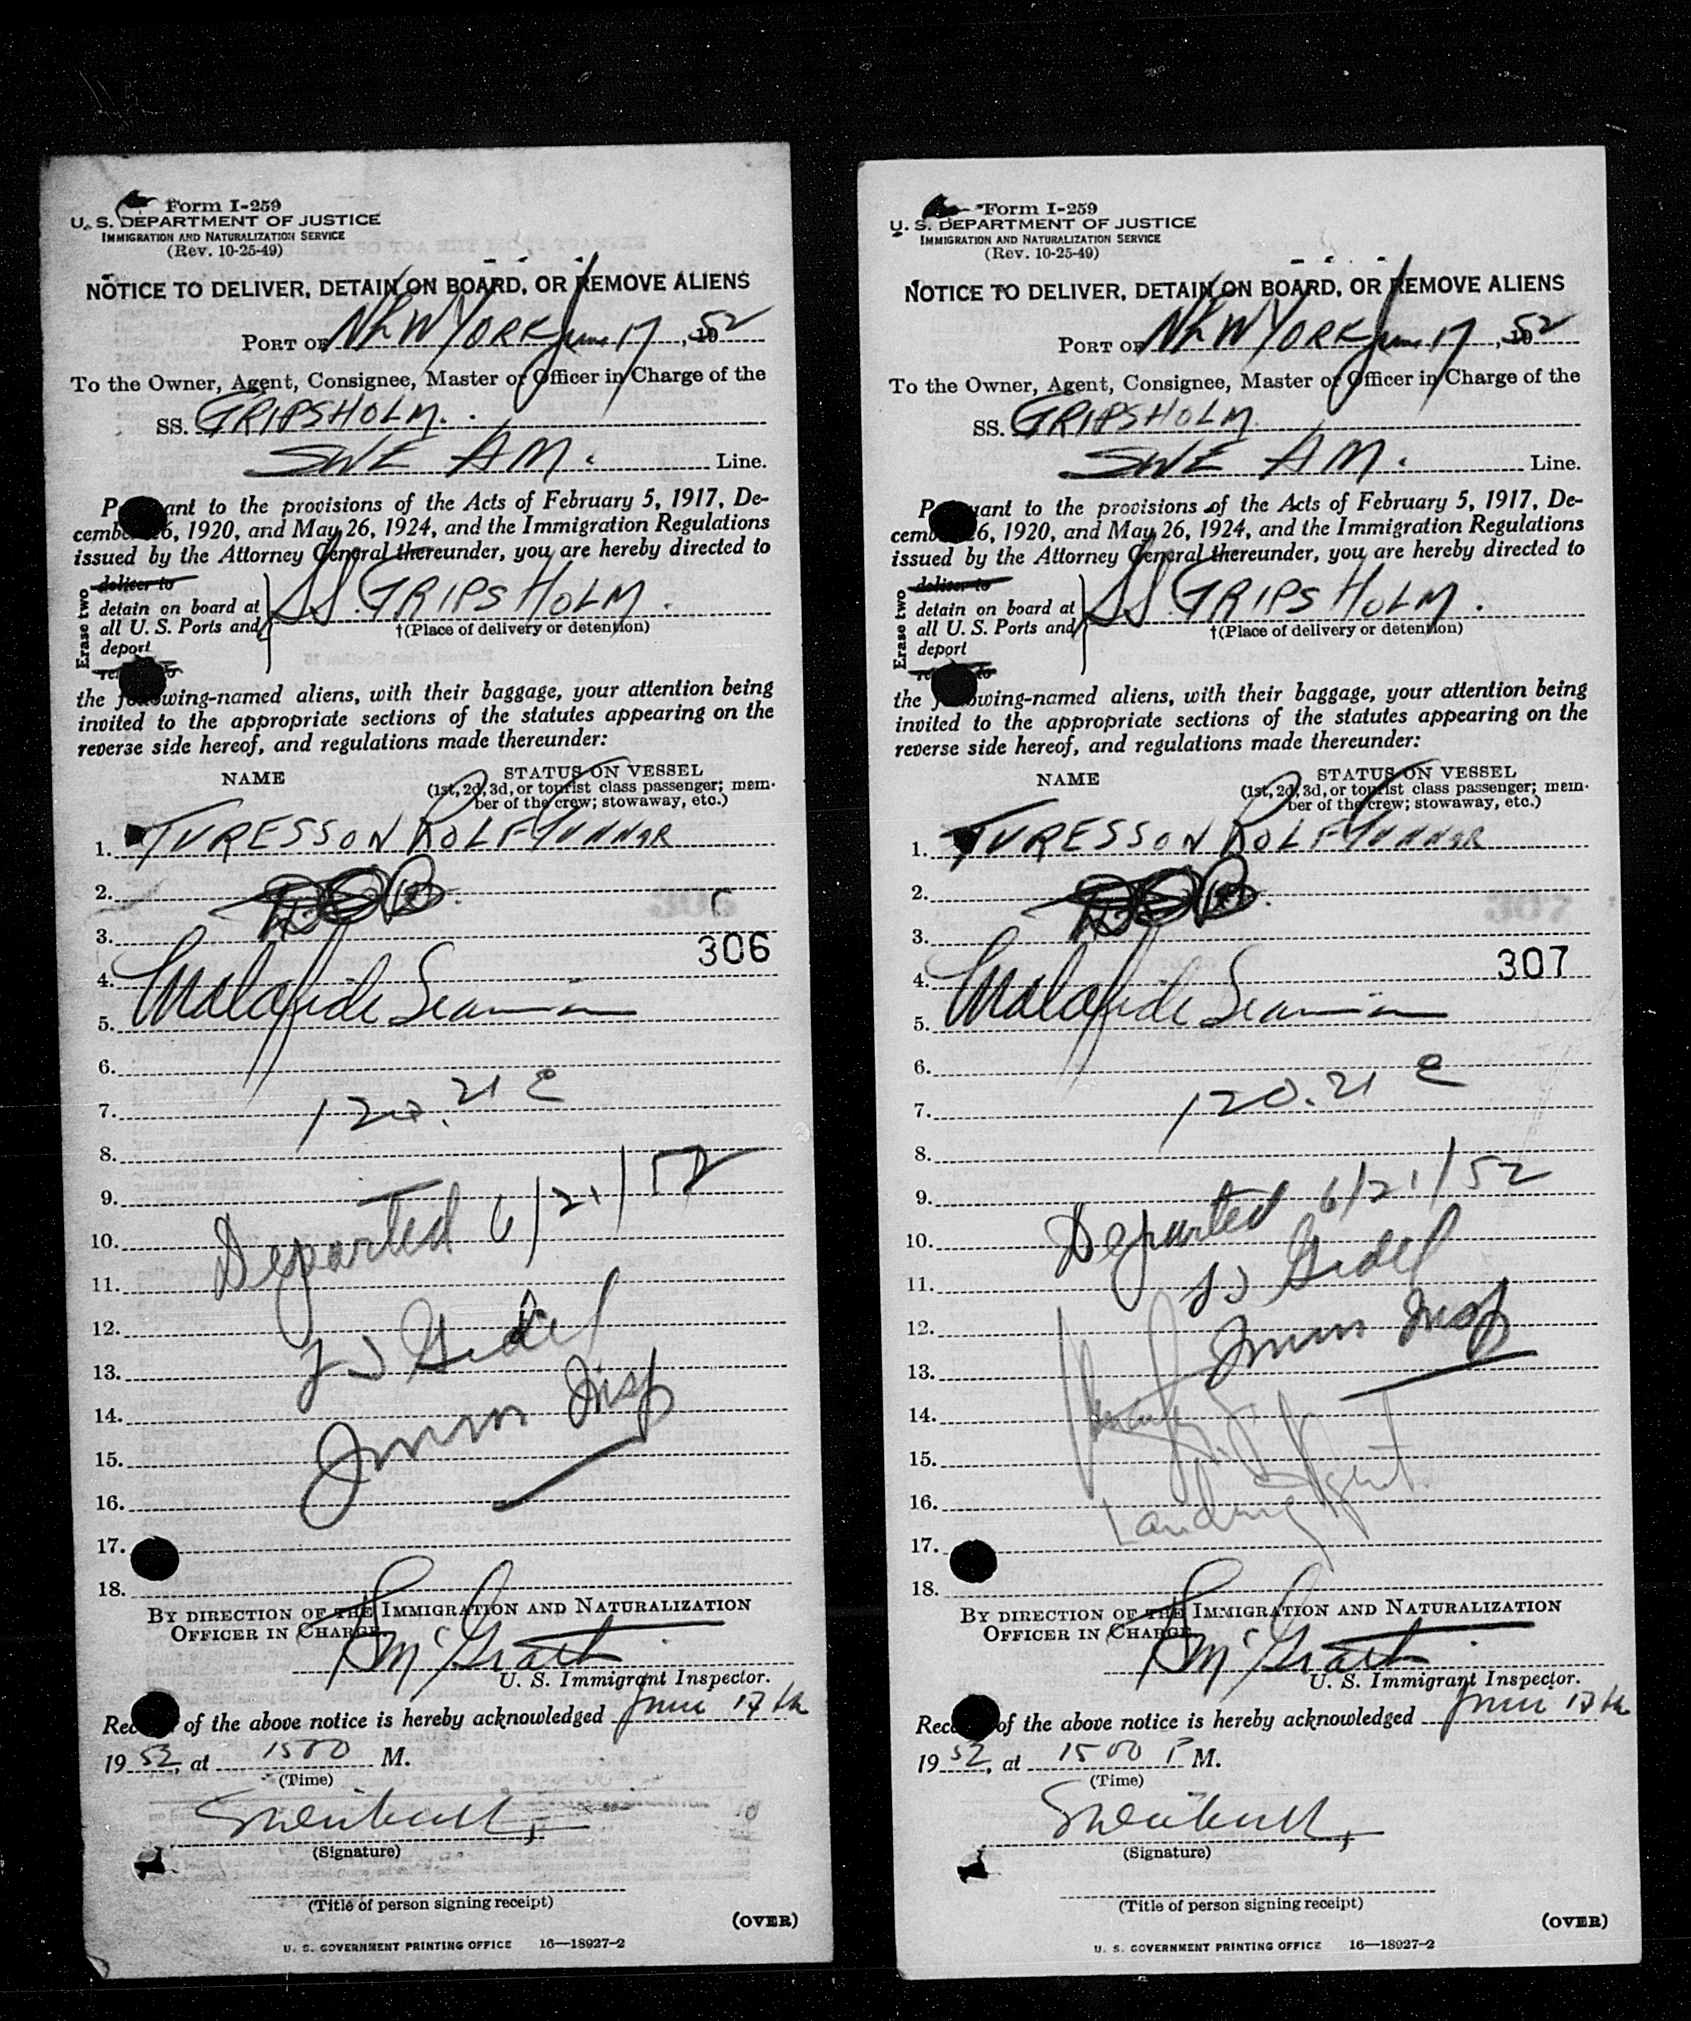 Form I-259
U. S. DEPARTMENT OF JUSTICE
IMMIGRATION AND NATURALIZATION SERVICE
(Rev. 10-25-49)
NOTICE TO DELIVER, DETAIN ON BOARD, OR REMOVE ALIENS
PORT OF NEW YORK June 17, 1952
To the Owner, Agent, Consignee, Master or Officer in Charge of the
SS. GRIPSHOLM.
SWE AM. Line.
Pursuant to the provisions of the Acts of February 5, 1917, De-
cember 26, 1920, and May 26, 1924, and the Immigration Regulations
issued by the Attorney General thereunder, you are hereby directed to
Erase two
deliver to
detain on board at
all U. S. Ports and
deport
SS. GRIPSHOLM.
†(Place of delivery or detention)
the following-named aliens, with their baggage, your attention being
invited to the appropriate sections of the statutes appearing on the
reverse side hereof, and regulations made thereunder:
NAME
STATUS ON VESSEL
(1st, 2d, 3d, or tourist class passenger; mem-
ber of the crew; stowaway, etc.)
1. TURESSON ROLF GUNNAR
2.
3.
306
4. Malafide Seaman
5.
6.
7. 120.21 C
8.
9.
10. Departed 6/21/52
11.
12.
13.
14. Immn Insp
15.
16.
17.
18.
BY DIRECTION OF THE IMMIGRATION AND NATURALIZATION
OFFICER IN CHARGE.
McGrath
U. S. Immigrant Inspector.
Receipt of the above notice is hereby acknowledged June 17th
1952, at 1500 M.
(Time)
(Signature)
(Title of person signing receipt)
(OVER)
U. S. GOVERNMENT PRINTING OFFICE 16—18927-2
Form I-259
U. S. DEPARTMENT OF JUSTICE
IMMIGRATION AND NATURALIZATION SERVICE
(Rev. 10-25-49)
NOTICE TO DELIVER, DETAIN ON BOARD, OR REMOVE ALIENS
PORT OF NEW YORK June 17, 1952
To the Owner, Agent, Consignee, Master or Officer in Charge of the
SS. GRIPSHOLM
SWE AM. Line.
Pursuant to the provisions of the Acts of February 5, 1917, De-
cember 26, 1920, and May 26, 1924, and the Immigration Regulations
issued by the Attorney General thereunder, you are hereby directed to
Erase two
deliver to
detain on board at
all U. S. Ports and
deport
SS. GRIPSHOLM.
†(Place of delivery or detention)
the following-named aliens, with their baggage, your attention being
invited to the appropriate sections of the statutes appearing on the
reverse side hereof, and regulations made thereunder:
NAME
STATUS ON VESSEL
(1st, 2d, 3d, or tourist class passenger; mem-
ber of the crew; stowaway, etc.)
1. TURESSON ROLF GUNNAR
2.
3.
307
4. Malafide Seaman
5.
6.
7. 120.21 C
8.
9.
10. Departed 6/21/52
11.
12. Immn Insp
13.
14.
15.
16. Landing Agent.
17.
18.
BY DIRECTION OF THE IMMIGRATION AND NATURALIZATION
OFFICER IN CHARGE.
McGrath
U. S. Immigrant Inspector.
Receipt of the above notice is hereby acknowledged June 17th
1952, at 1500 P M.
(Time)
(Signature)
(Title of person signing receipt)
(OVER)
U. S. GOVERNMENT PRINTING OFFICE 16—18927-2